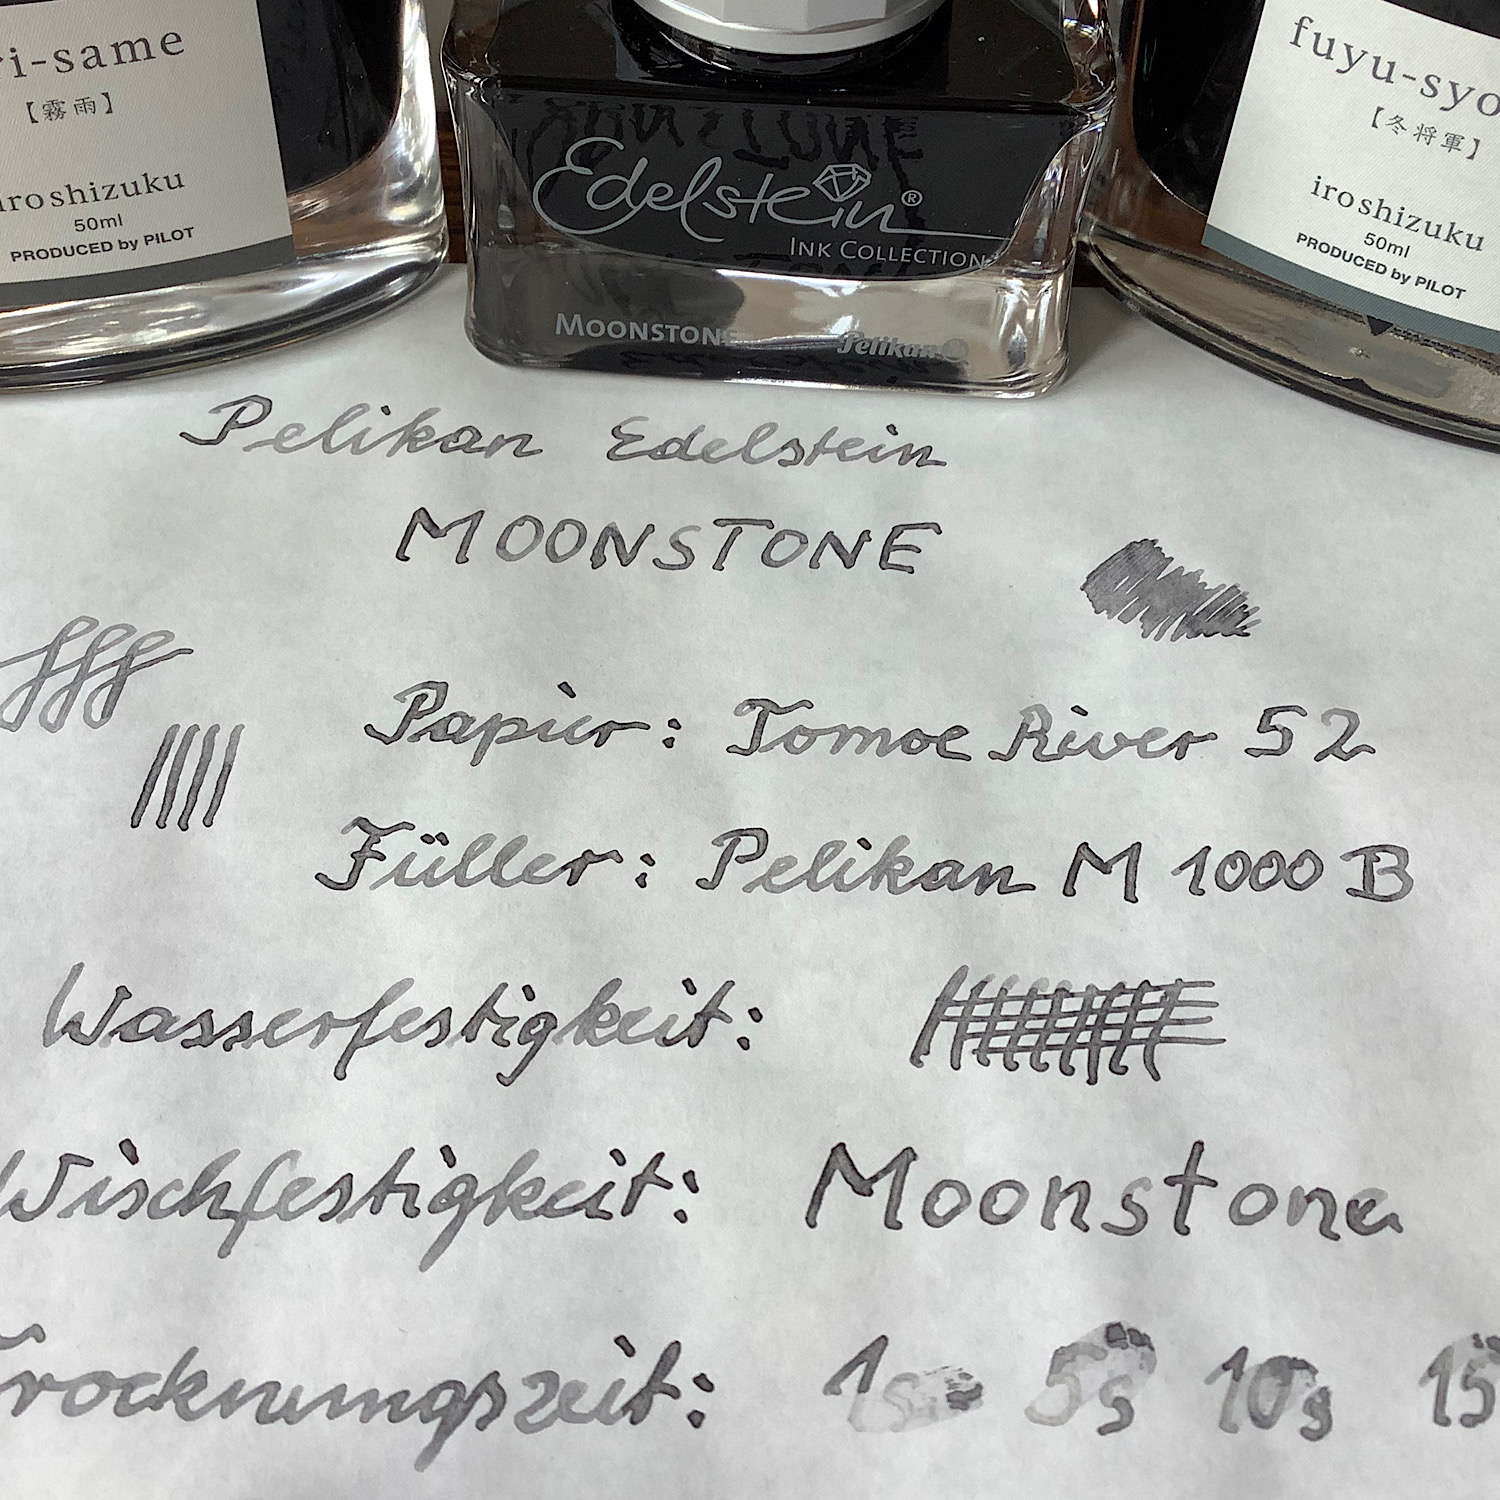 ri-same
【霧雨】
iroshizuku
50ml
PRODUCED by PILOT
Edelstein®
INK COLLECTION
MOONSTONE
Pelikan
fuyu-syo
【冬将軍】
iroshizuku
50ml
PRODUCED by PILOT
Pelikan Edelstein
MOONSTONE
Papier: Tomoe River 52
Füller: Pelikan M 1000 B
Wasserfestigkeit:
Wischfestigkeit: Moonstone
Trocknungszeit: 1s 5s 10s 15